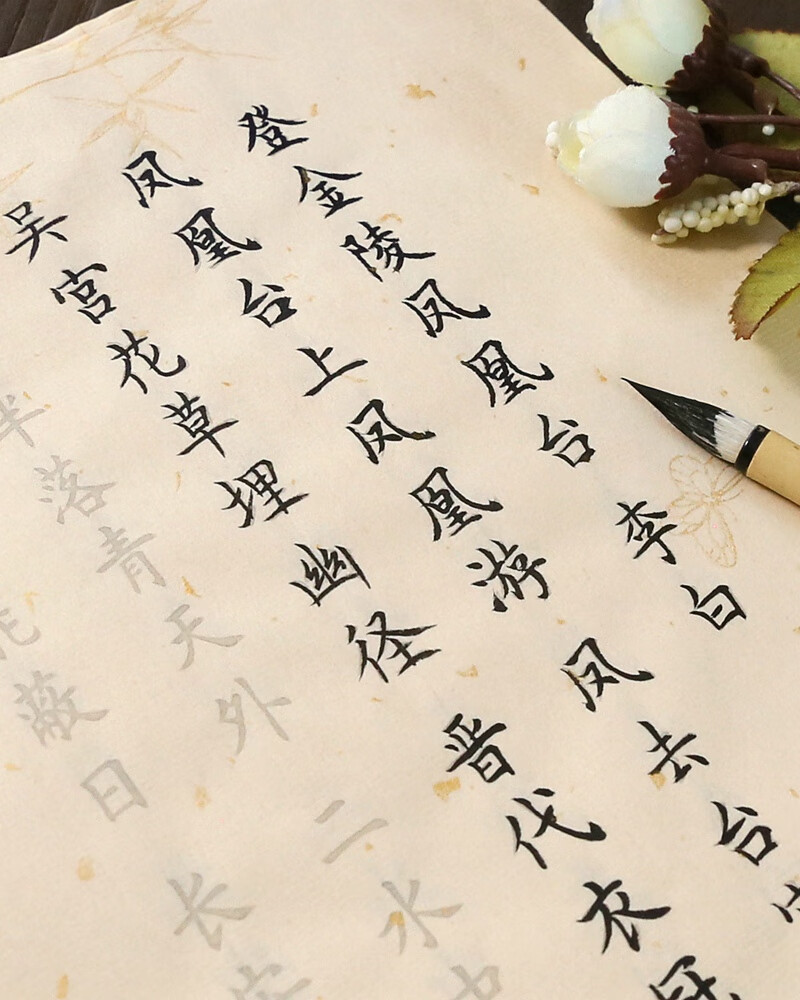 登金陵凤凰台 李白
凤凰台上凤凰游 凤去台
吴宫花草埋幽径 晋代衣冠
半落青天外 二水中
蔽日 长安